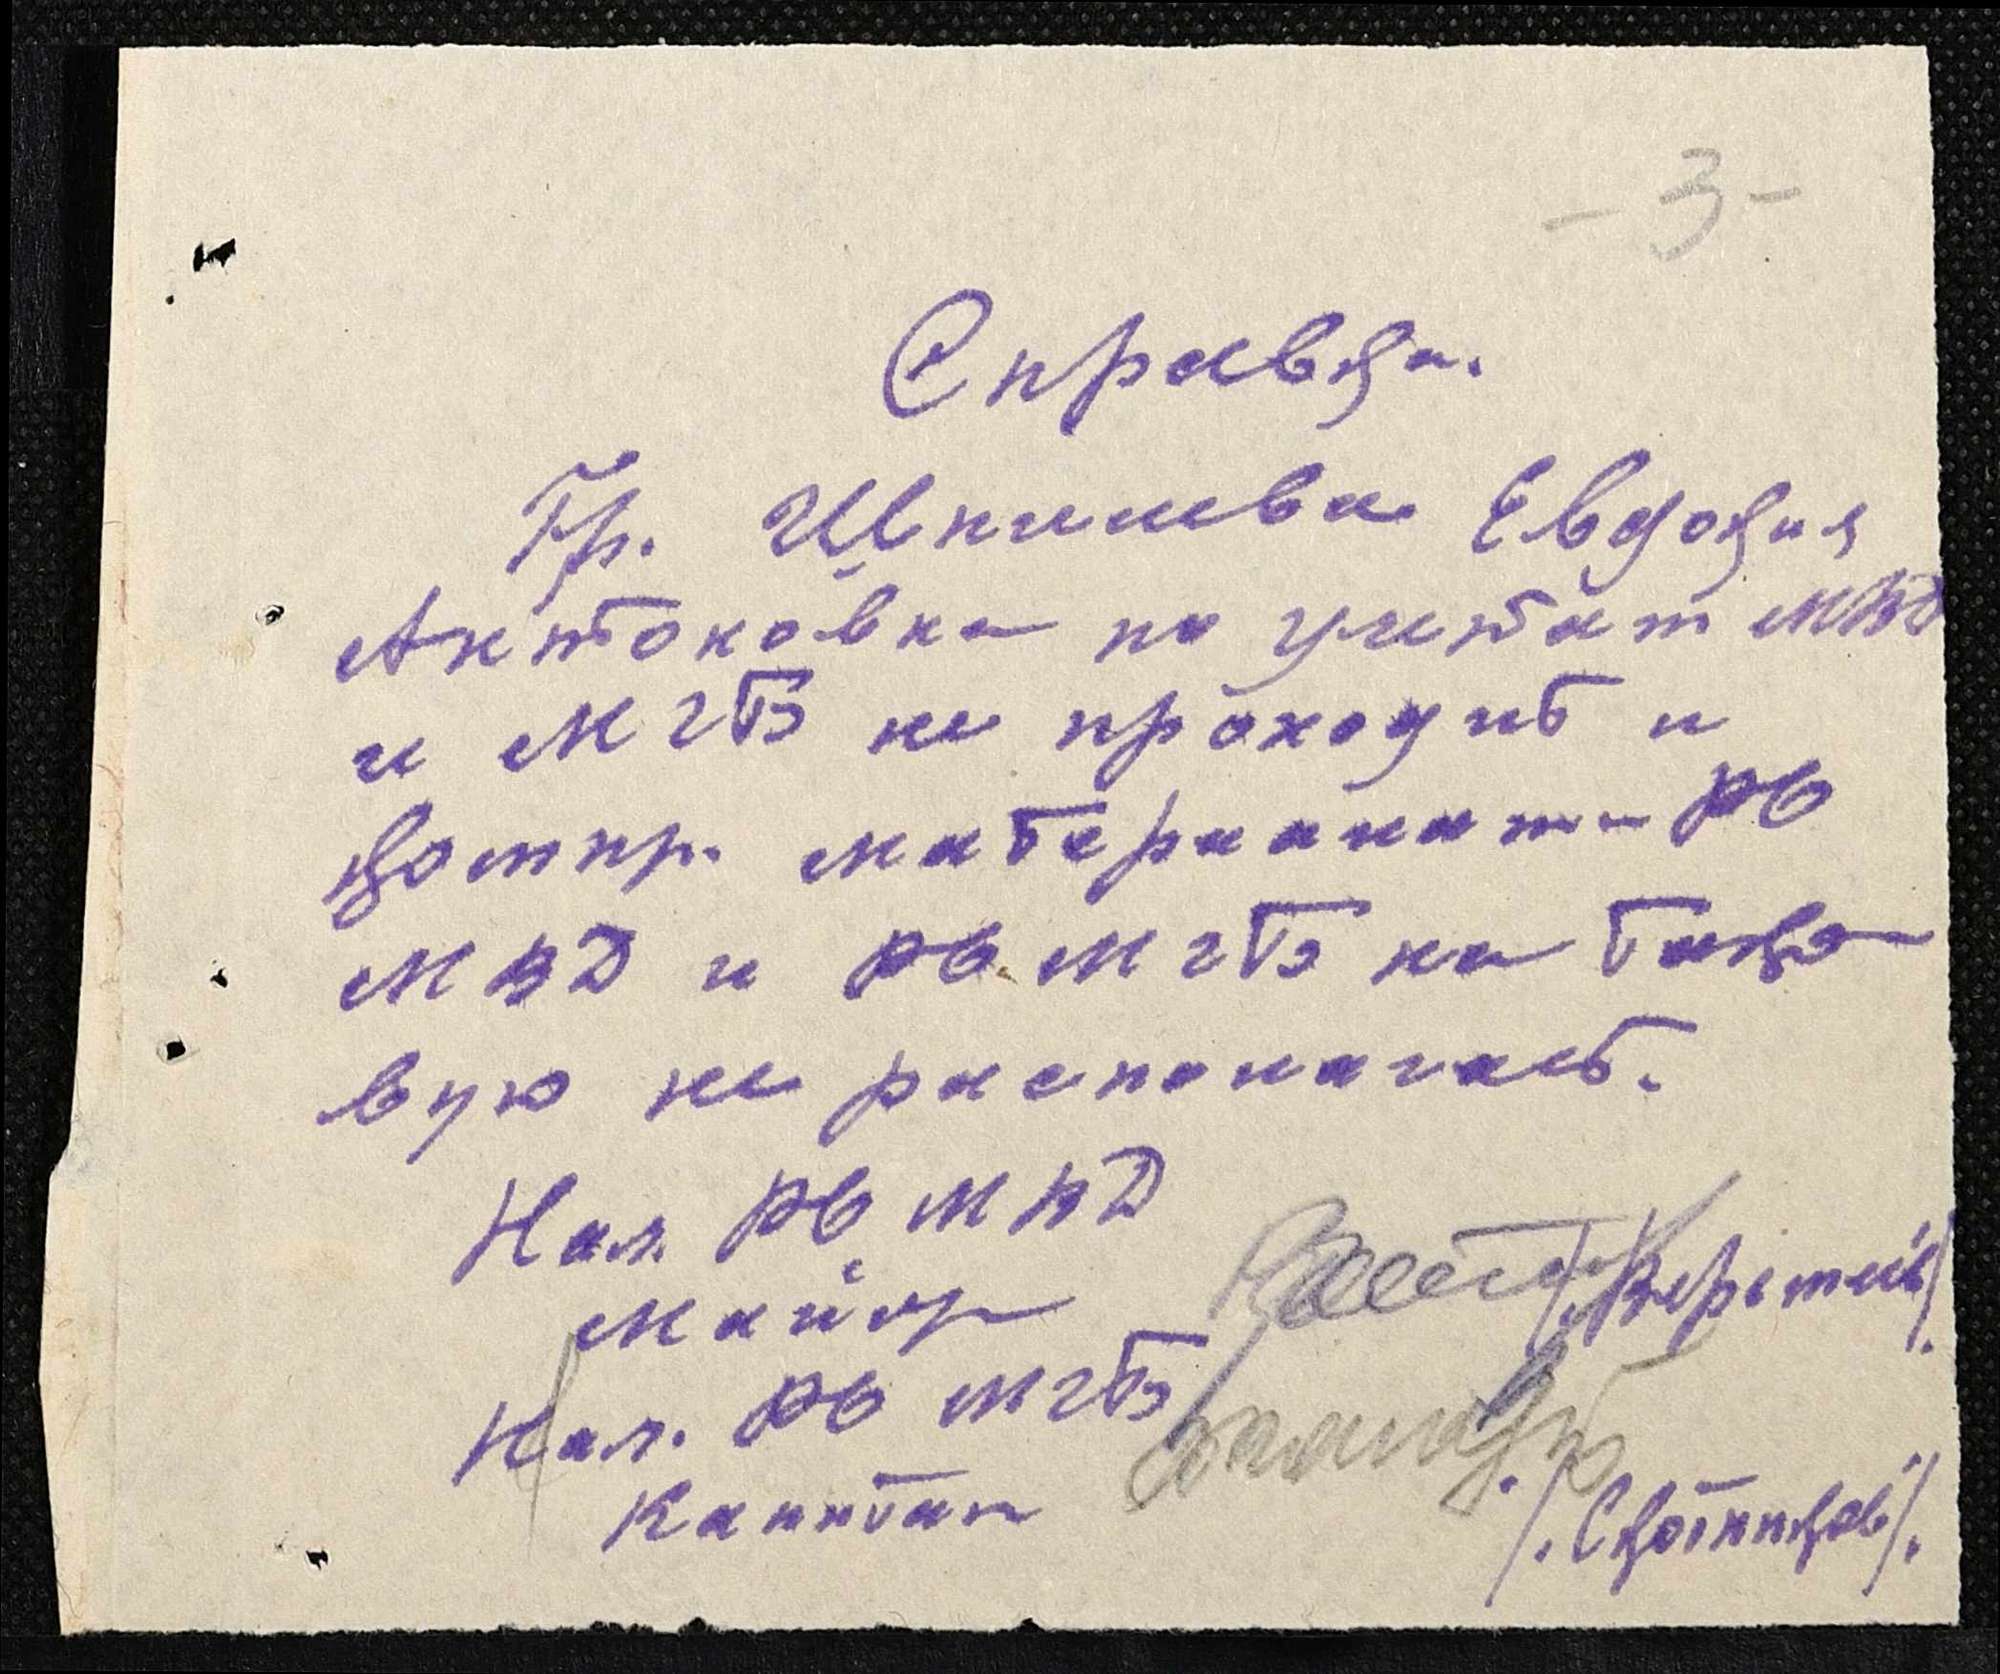 - 3 -
Справка.
Гр. Шпилева Евдокия
Антоновна по учетам МВД
и МГБ не проходит и
компр. материалами РО
МВД и РО МГБ на тако-
вую не располагает.
Нач. РО МВД
Майор /. Веретнов/.
Нач. РО МГБ
Капитан /. Скотников/.